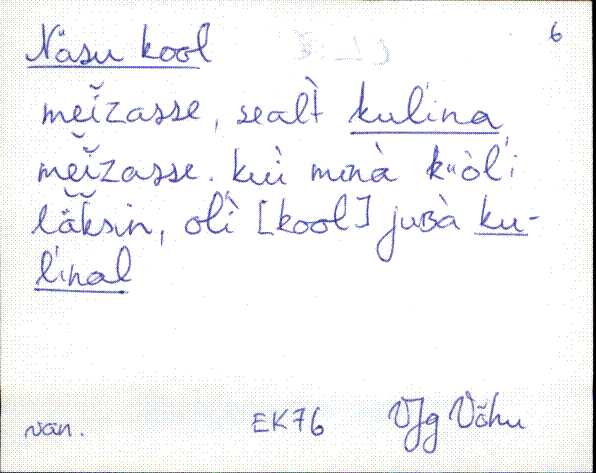 Näsu kool
6
mei̯zasse, sealt̀ kulina
mei̯zasse. kuì minà kuòl'i
läksin, olì [kool] juBà ku-
linal
van.
EK76
VJg Võhu